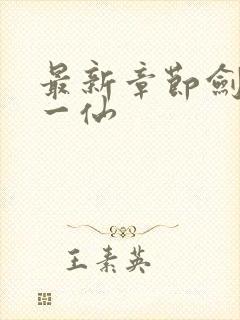 最新章節劍
一仙
王素英